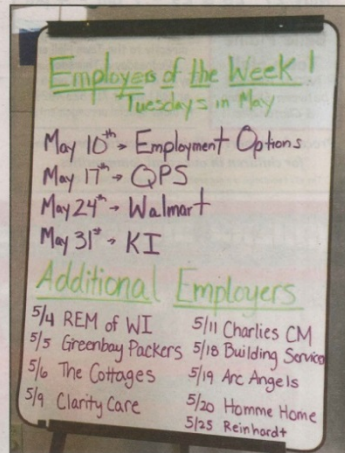 Employers of the Week!
Tuesdays in May
May 10th → Employment Options
May 17th → QPS
May 24th → Walmart
May 31st → KI
Additional Employers
5/4 REM of WI
5/5 Greenbay Packers
5/6 The Cottages
5/9 Clarity Care
5/11 Charlies CM
5/18 Building Service
5/19 Arc Angels
5/20 Homme Home
5/25 Reinhardt